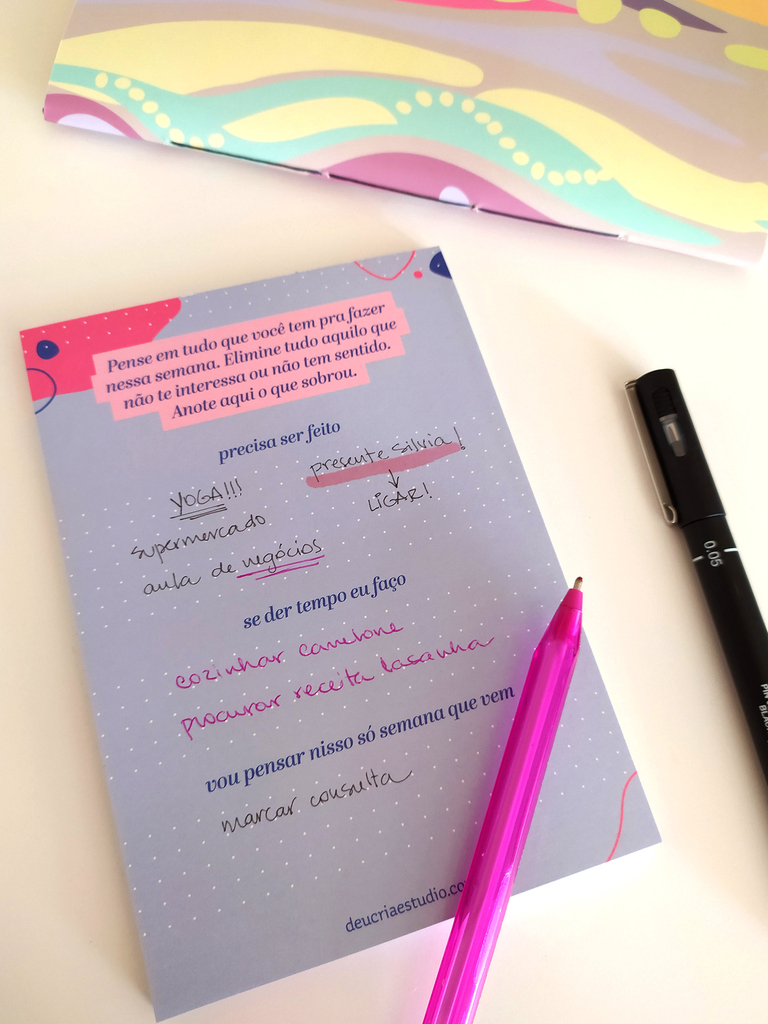 Pense em tudo que você tem pra fazer
nessa semana. Elimine tudo aquilo que
não te interessa ou não tem sentido.
Anote aqui o que sobrou.
precisa ser feito
YOGA!!!
supermercado
aula de negócios
presente Silvia!
LIGAR!
se der tempo eu faço
cozinhar canelone
procurar receita lasanha
vou pensar nisso só semana que vem
marcar consulta
deucriaestudio.co
0.05
PIN
BLAC